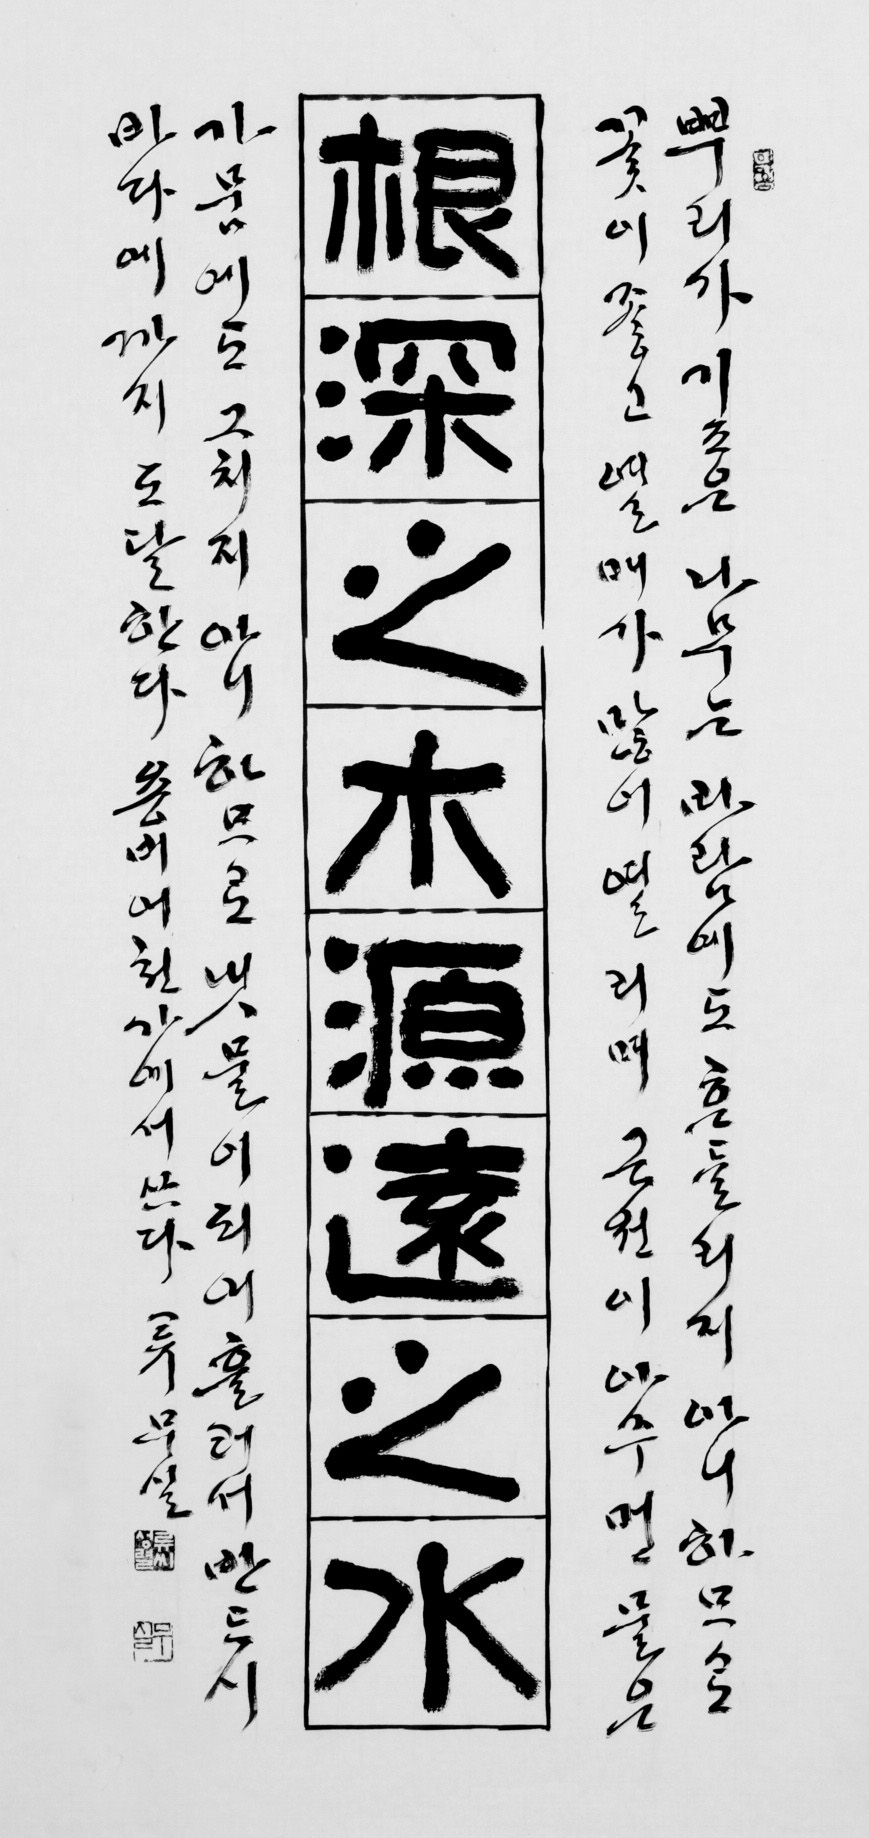 뿌리가 기픈 나무는 바람에도 흔들리지 아니하므로
꽃이 좋고 열매가 많이 열리며 근원이 아주 먼 물은
根深之木源遠之水
가뭄에도 그치지 아니하므로 냇물이 되어 흘러서 반드시
바다에 까지 도달한다 용비어천가에서 쓰다 무실